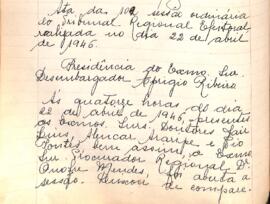 Ata da 10ª sessão ordinária
do Tribunal Regional Eleitoral,
realizada no dia 22 de abril
de 1946.
Presidência do Exmo. Snr.
Desembargador Ribeiro
Ás quatorze horas do dia
22 de abril de 1946, presentes
os Exmos. Snrs. Doutores Jair
Lins, Alencar Araripe e
Pontes bem assim, o Exmo.
Snr. Procurador Regional, Dr.
Onofre Mendes, foi aberta a
sessão. Deixou de compare-